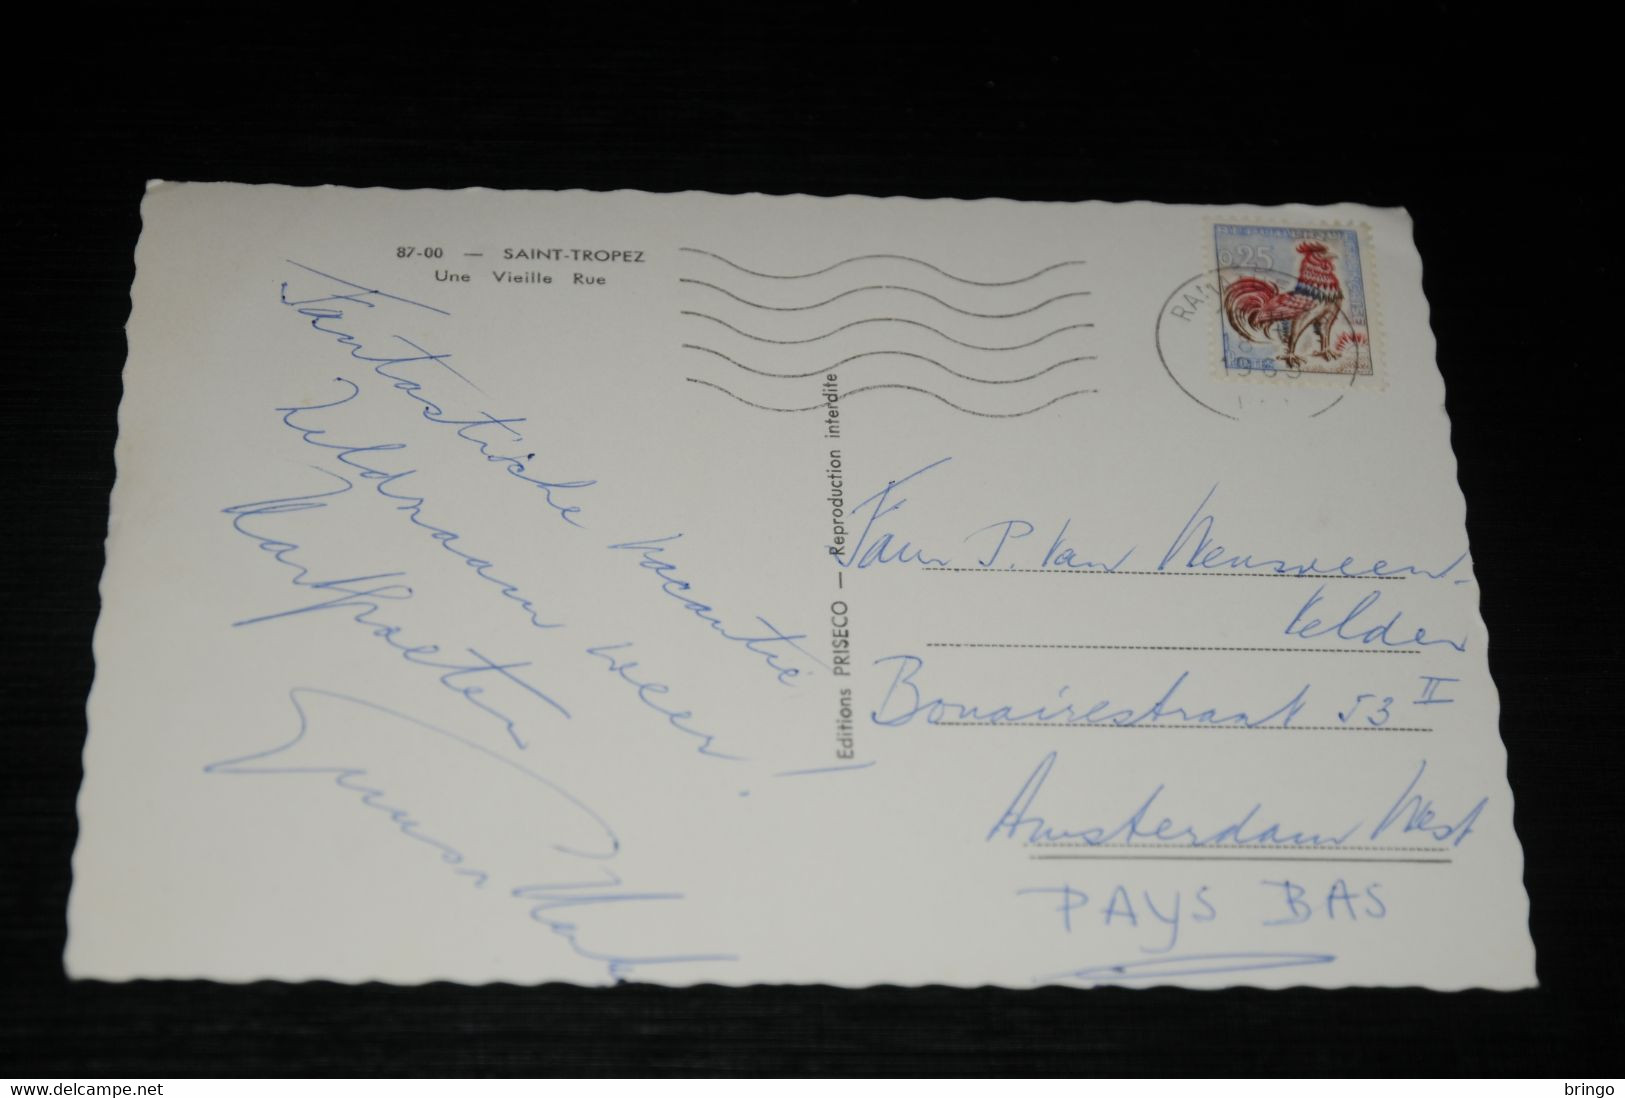 87-00 — SAINT-TROPEZ
Une Vieille Rue
Fantastische vacantie
weer!
Hart. groeten
Editions PRISECO — Reproduction interdite
REPUBLIQUE FRANCAISE
0,25
Fam P. van
Velden
Bonairestraat 53 II
Amsterdam West
PAYS BAS
delcampe.net
bringo